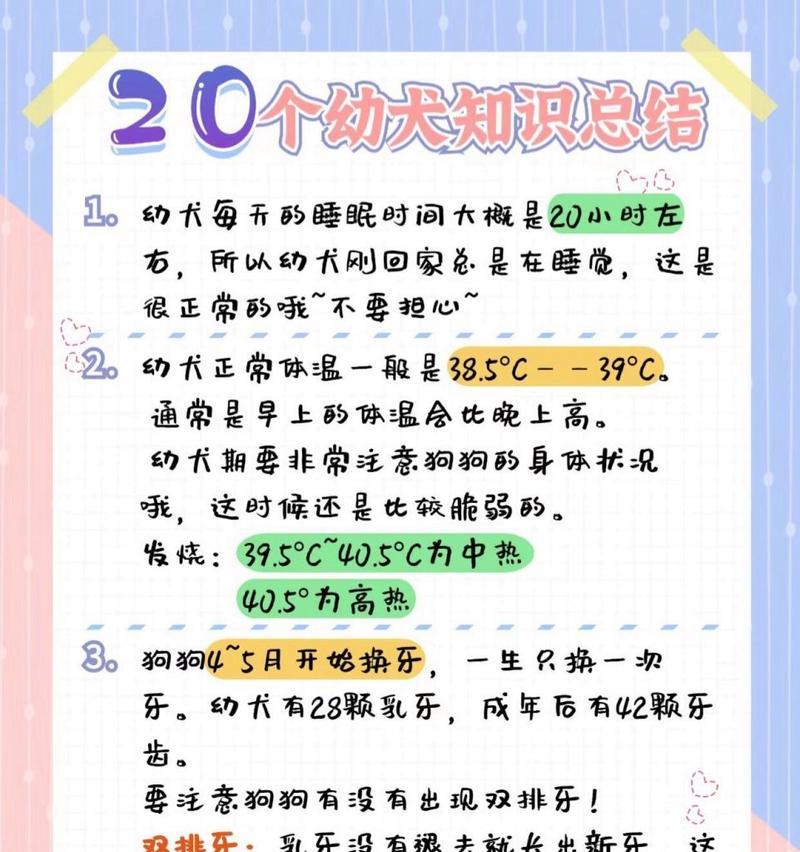 20个幼犬知识总结
1. 幼犬每天的睡眠时间大概是20小时左
右，所以幼犬刚回家总是在睡觉，这是
很正常的哦~不要担心~
2. 幼犬正常体温一般是38.5°C--39°C。
通常是早上的体温会比晚上高。
幼犬期要非常注意狗狗的身体状况
哦，这时候还是比较脆弱的。
发烧：39.5°C~40.5°C为中热
40.5°为高热
3. 狗狗4~5月开始换牙，一生只换一次
牙。幼犬有28颗乳牙，成年后有42颗牙
齿。
要注意狗狗有没有出现双排牙！
双排牙：乳牙没有褪去就长出新牙，这